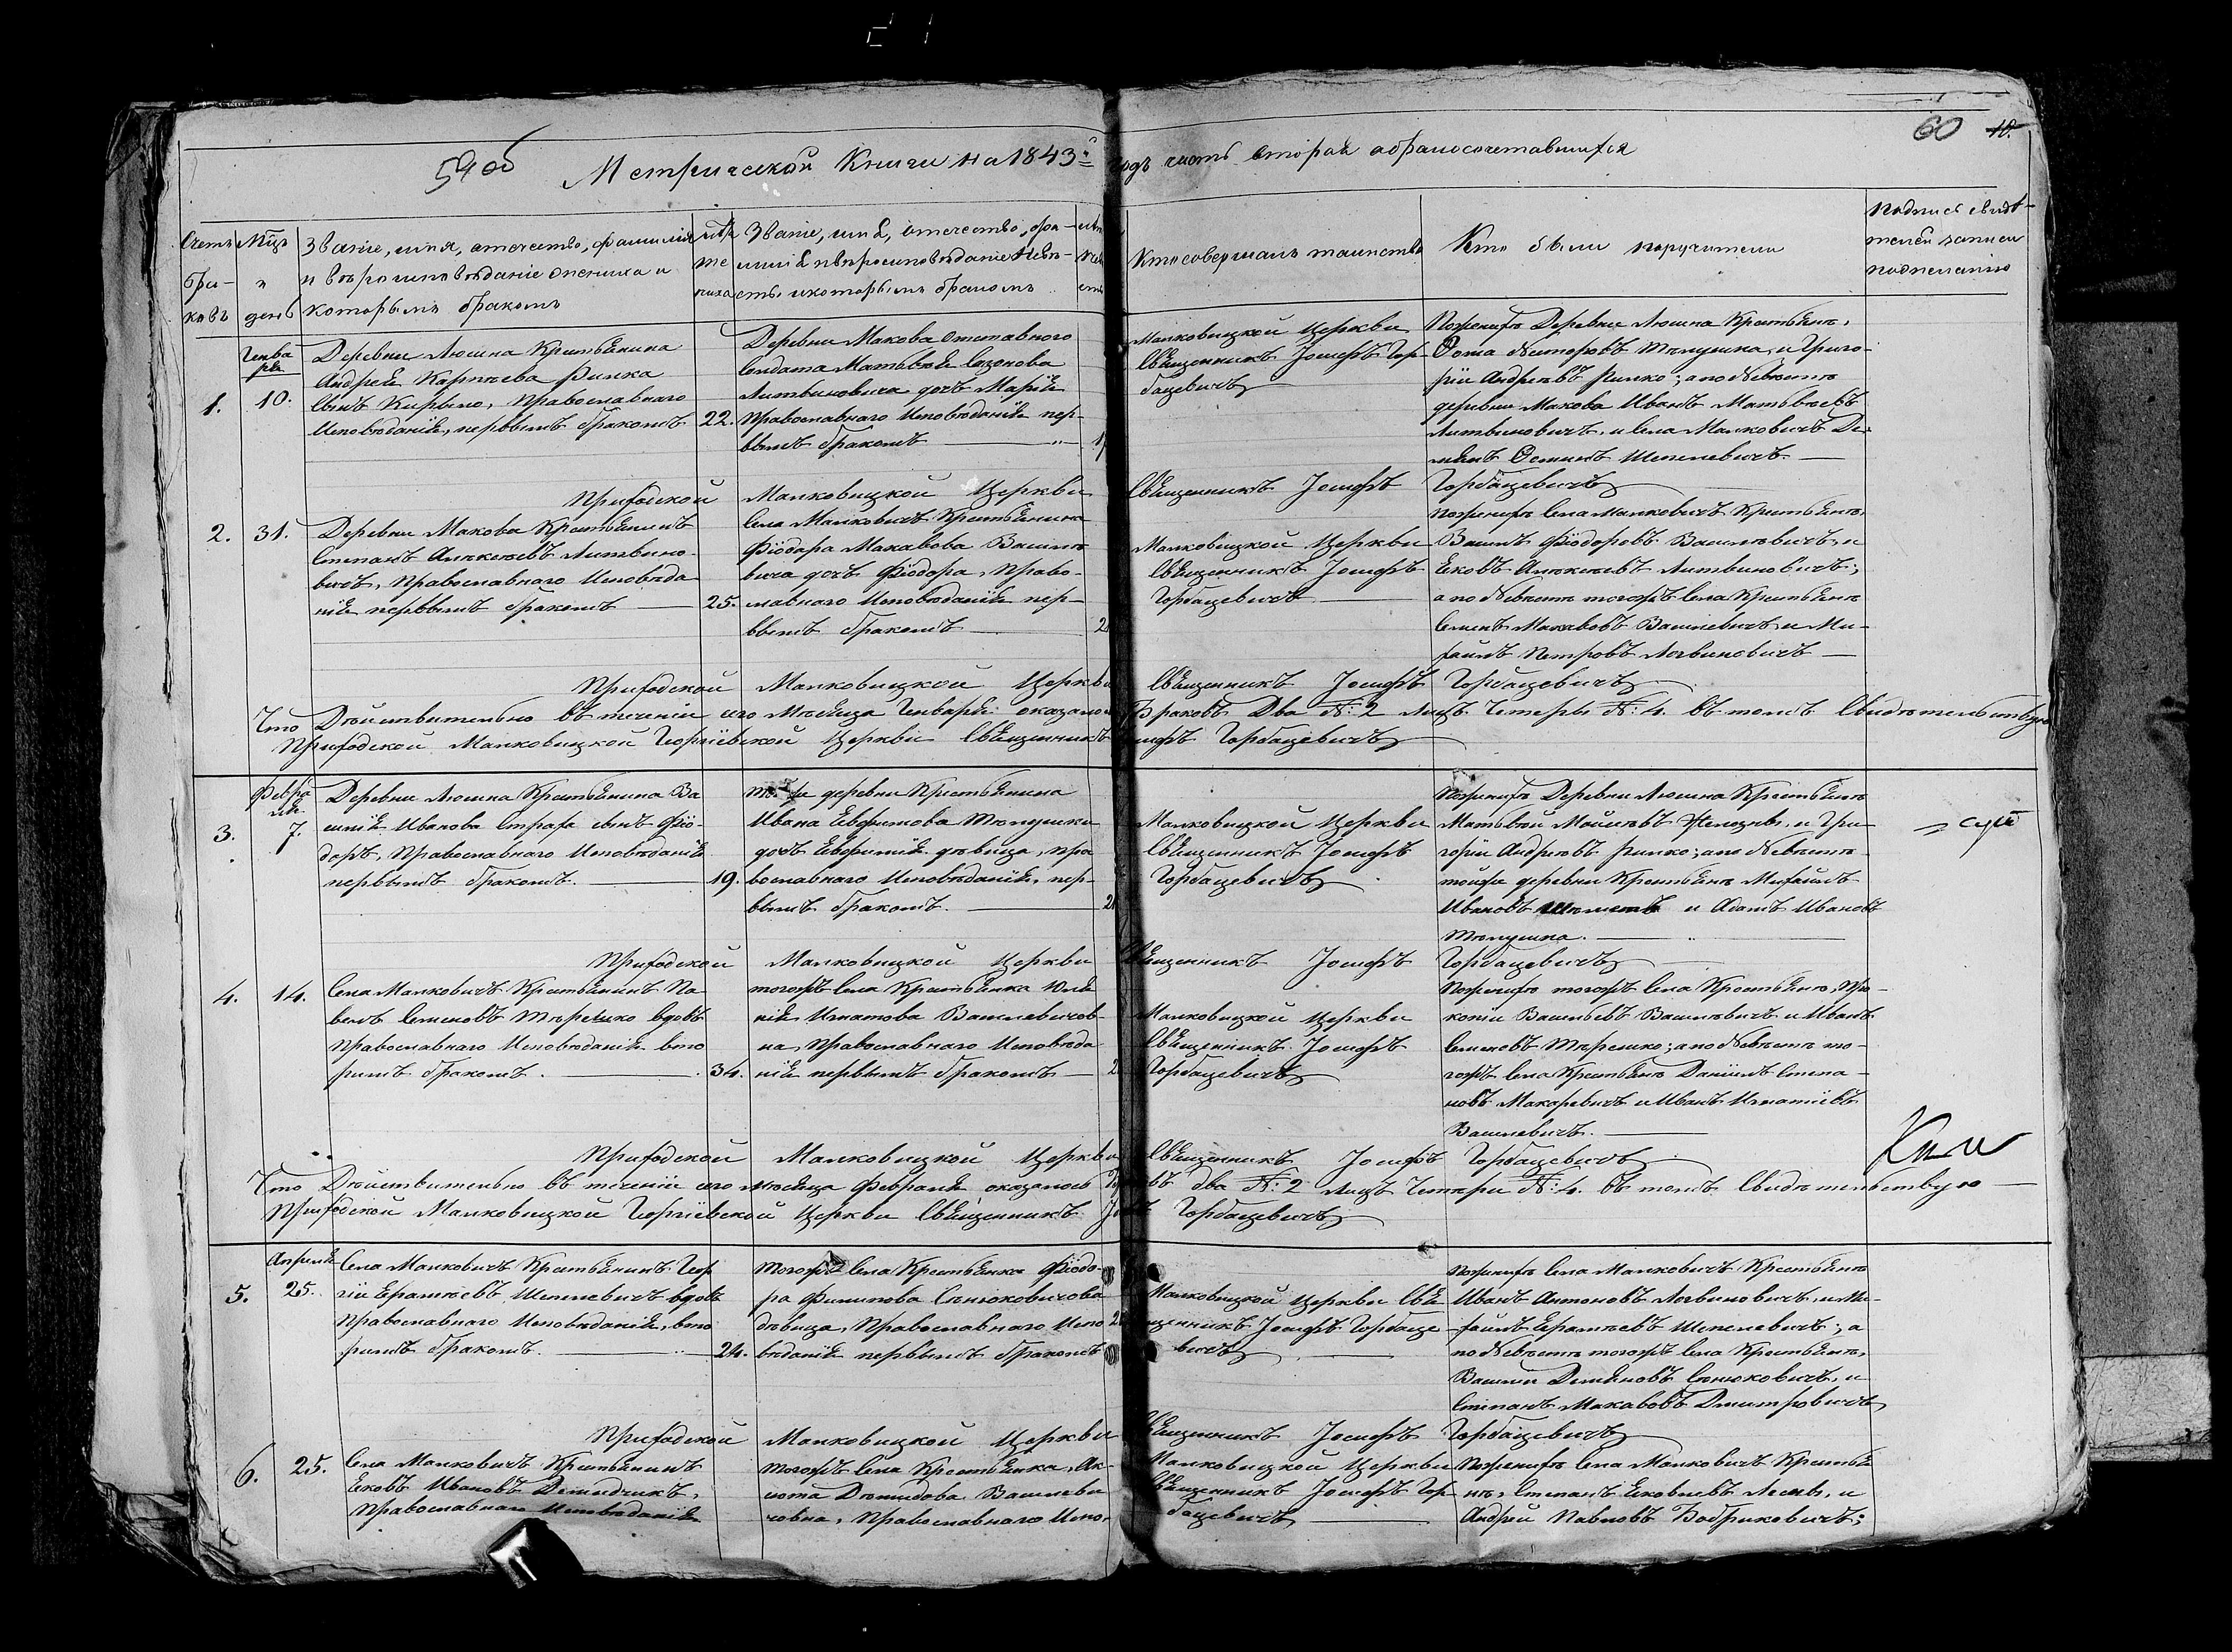 59 об
Метрической Книги на 1843й годъ часть вторая о бракосочетавшихся
60 10.
Счетъ браковъ
Мцъ и день
Званіе, имя, отечество, фамилія
и вѣроисповѣданіе жениха и
которымъ бракомъ
Званіе, имя, отечество, фа-
милія и вѣроисповѣданіе невѣ-
сты и которымъ бракомъ
Кто совершалъ таинство
Кто были поручители
Подпись свидѣ-
телей записи
по желанію
Генва
ря
1. 10.
Деревни Люшна Крестьянина
Андрея Карпѣева Рылка
сынъ Кирыло, Православнаго
Исповѣданія, первымъ бракомъ 22.
Деревни Макова отставного
Солдата Матьвѣя Сазонова
Литвиновича дочъ Марія
Православнаго Исповѣданія пер-
вымъ бракомъ
Малковицкой Церкви
Священникъ Іосифъ Гор-
бацевичъ
По женихѣ Деревни Люшна Крестьянѣ,
Ѳома Несторовъ Тѣлушка, и Григо-
рій Андреевъ Рылко; а по Невѣстѣ
деревни Макова Иванъ Матьвѣевъ
Литвиновичъ, и Села Малковичъ Де-
мьянъ Ѳоминъ Шепелевичъ.
Приходской Малковицкой Церкви Священникъ Іосифъ Горбацевичъ
2. 31.
Деревни Макова Крестьянинъ
Степанъ Алексѣевъ Литвино-
вичъ, Православнаго Исповѣда
нія первымъ бракомъ 25.
Села Малковичъ Крестьянина
Фіодара Макавова Василе
вича дочъ Фіодора, Право-
славнаго Исповѣданія пер-
ввымъ бракомъ
Малковицкой Церкви
Священникъ Іосифъ
Горбацевичъ
По женихѣ Села Малковичъ Крестьянѣ,
Василъ Фіодоровъ Василевичъ, и
Яковъ Алексѣевъ Литвиновичъ;
а по Невѣстѣ тогожъ Села Крестьянѣ
Семенъ Макавовъ Василевичъ и Ми-
хаилъ Петровъ Логвиновичъ
Приходской Малковицкой Церкви Священникъ Іосифъ Горбацевичъ
Что Дѣйствительно въ теченіи сего Мѣсяца Генваря оказалось Браковъ Два №: 2 лицъ Четеры №: 4. въ томъ Свидѣтельствую
Приходской Малковицкой Георгіевской Церкви Священникъ Іосифъ Горбацевичъ
Февра
ля
3. 7.
Деревни Люшна Крестьянина Ва
силія Иванова Страха сынъ Фіо-
доръ, Православнаго Исповѣданія
первымъ бракомъ. 19.
той же деревни Крестьянина
Ивана Евфимова Тѣлушки
дочъ Евфимія дѣвица, пра
вославнаго Исповѣданія, пер-
вымъ бракомъ.
Малковицкой Церкви
Священникъ Іосифъ
Горбацевичъ
По женихѣ Деревни Люшна Крестьянѣ
Матьвѣй Мойсѣевъ и Гри
горій Андреевъ Рылко; а по Невѣстѣ
тойже деревни Крестьянѣ Михаилъ
Ивановъ и Адамъ Ивановъ
Тѣлушка.
Приходской Малковицкой Церкви Священникъ Іосифъ Горбацевичъ
4. 14.
Села Малковичъ Крестьянинъ Па-
велъ Семеновъ Терешко вдовъ
Православнаго Исповѣданія вто
рымъ бракомъ. 34.
тогожъ Села Крестьянка Юлі
нія Игнатова Василевичов-
на, Православнаго Исповѣда
нія первымъ бракомъ
Малковицкой Церкви
Священникъ Іосифъ
Горбацевичъ
По женихѣ тогожъ Села Крестьянѣ, Про-
копій Васильевъ Василевичъ и Иванъ
Семеновъ Терешко; а по Невѣстѣ то-
гожъ Села Крестьянѣ Даніилъ Степа-
новъ Макаревичъ и Иванъ Игнатіевъ
Василевичъ.
Приходской Малковицкой Церкви Священникъ Іосифъ Горбацевичъ
Что Дѣйствительно въ теченіи сего мѣсяца Февраля оказалось Браковъ два №: 2 лицъ Четыри №: 4. въ томъ Свидѣтельствую
Приходской Малковицкой Георгіевской Церкви Священникъ Горбацевичъ
Апреля
5. 25.
Села Малковичъ Крестьянинъ Геор
гій Ермѣевъ Шепелевичъ вдовъ
Православнаго Исповѣданія, вто
рымъ бракомъ. 24.
Тогожъ Села Крестьянка Фіодо-
ра Филипова Сенюковичова
дѣвица, Православнаго Испо
вѣданія первымъ бракомъ
Малковицкой Церкви Свя
щенникъ Іосифъ Горбаце
вичъ
По женихѣ Села Малковичъ Крестьянѣ
Иванъ Антоновъ Логвиновичъ, и Ми-
хаилъ Ермѣевъ Шепелевичъ; а
по Невѣстѣ тогожъ Села Крестьянѣ,
Василій Демьяновъ Сенюковичъ, и
Степанъ Макавовъ Дмитровичъ
Приходской Малковицкой Церкви Священникъ Іосифъ Горбацевичъ
6. 25.
Села Малковичъ Крестьянинъ
Яковъ Ивановъ Демидчикъ,
Православнаго Исповѣданія
тогожъ Села Крестьянка, Ак-
Демидова Василеви
човна, Православнаго Испо-
Малковицкой Церкви
Священникъ Іосифъ Гор-
бацевичъ
По женихѣ Села Малковичъ Крестья
нѣ, Степанъ Яковлевъ и
Андрей Павловъ Бобриковичъ;